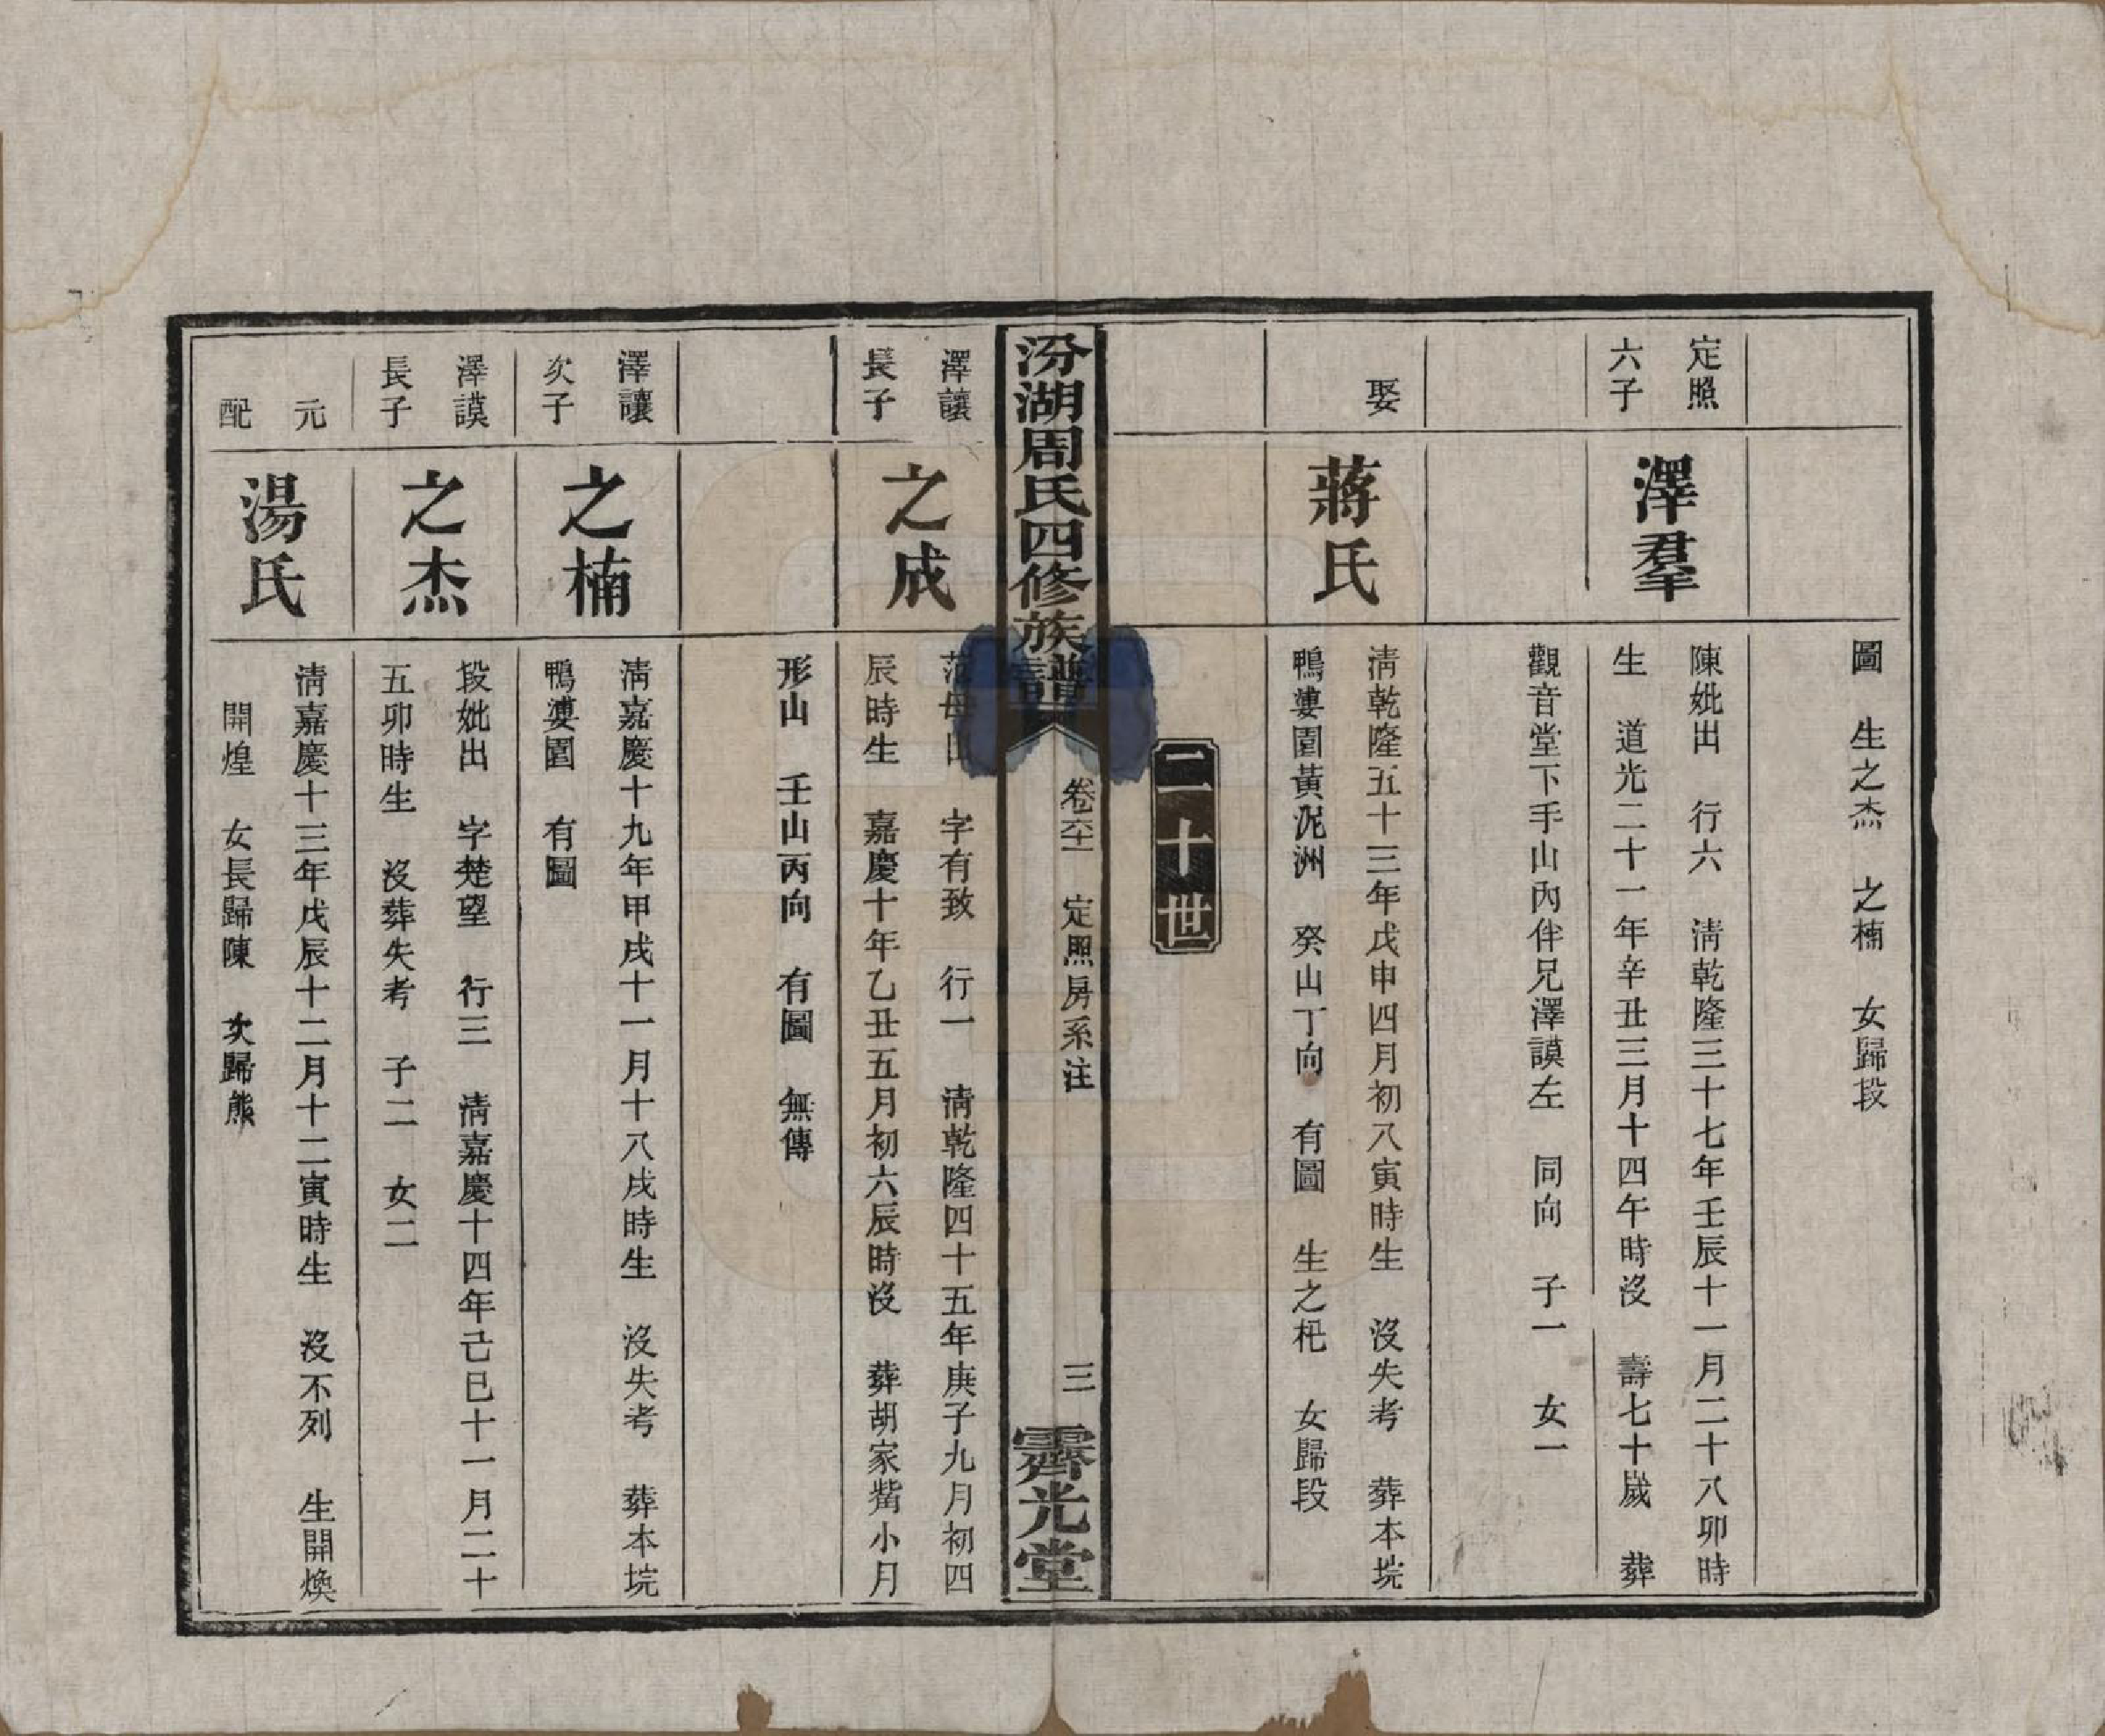 圖　生之杰　之楠　女歸段
定照
六子
澤羣
陳妣出　行六　清乾隆三十七年壬辰十一月二十八卯時
生　道光二十一年辛丑三月十四午時沒　壽七十歲　葬
觀音堂下手山內伴兄澤謨左　同向　子一　女一
娶
蔣氏
清乾隆五十三年戊申四月初八寅時生　沒失考　葬本垸
鴨婁園黃泥洲　癸山丁向　有圖　生之杞　女歸段
二十世
汾湖周氏四修族譜
卷六十一　定照房系注
三
霽光堂
澤讓
長子
之成
范母出　字有致　行一　清乾隆四十五年庚子九月初四
辰時生　嘉慶十年乙丑五月初六辰時沒　葬胡家觜小月
形山　壬山丙向　有圖　無傳
澤讓
次子
之楠
清嘉慶十九年甲戌十一月十八戌時生　沒失考　葬本垸
鴨婁園　有圖
澤謨
長子
之杰
段妣出　字楚望　行三　清嘉慶十四年己巳十一月二十
五卯時生　沒葬失考　子二　女二
元
配
湯氏
清嘉慶十三年戊辰十二月十二寅時生　沒不列　生開煥
開煌　女長歸陳　次歸熊